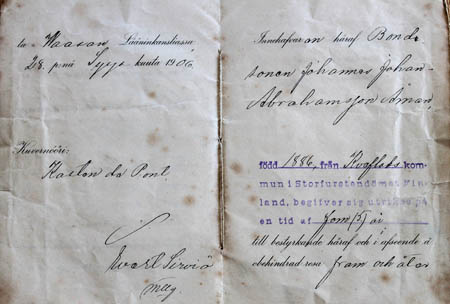 ta Waasan Lääninkansliassa,
28 p:nä Syys kuuta 1906.
Kuvernööri:
Kasten de Pont.
mag.
Innehafvaran häraf Bonde
sonen Johannes Johan
Abrahamsson Åman,
född 1886, från Kveflaks kom-
mun i Storfurstendömet Fin-
land, begifver sig utrikes på
en tid af fem (5) år
till bestyrkande häraf och i afseende å
obehindrad resa fram och åter